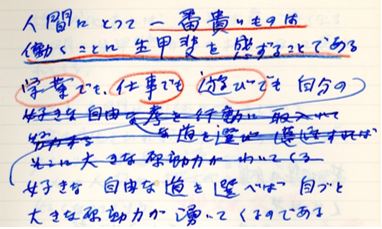 人間にとって一番貴いものは
働くことに生甲斐を感ずることである
学業でも、仕事でも遊びでも自分の
好きな自由な考を行動に取入れて
努力する な道を選び 選 すれば
そこに大きな原動力がわいてくる
好きな自由な道を選べば自づと
大きな原動力が湧いてくるのである